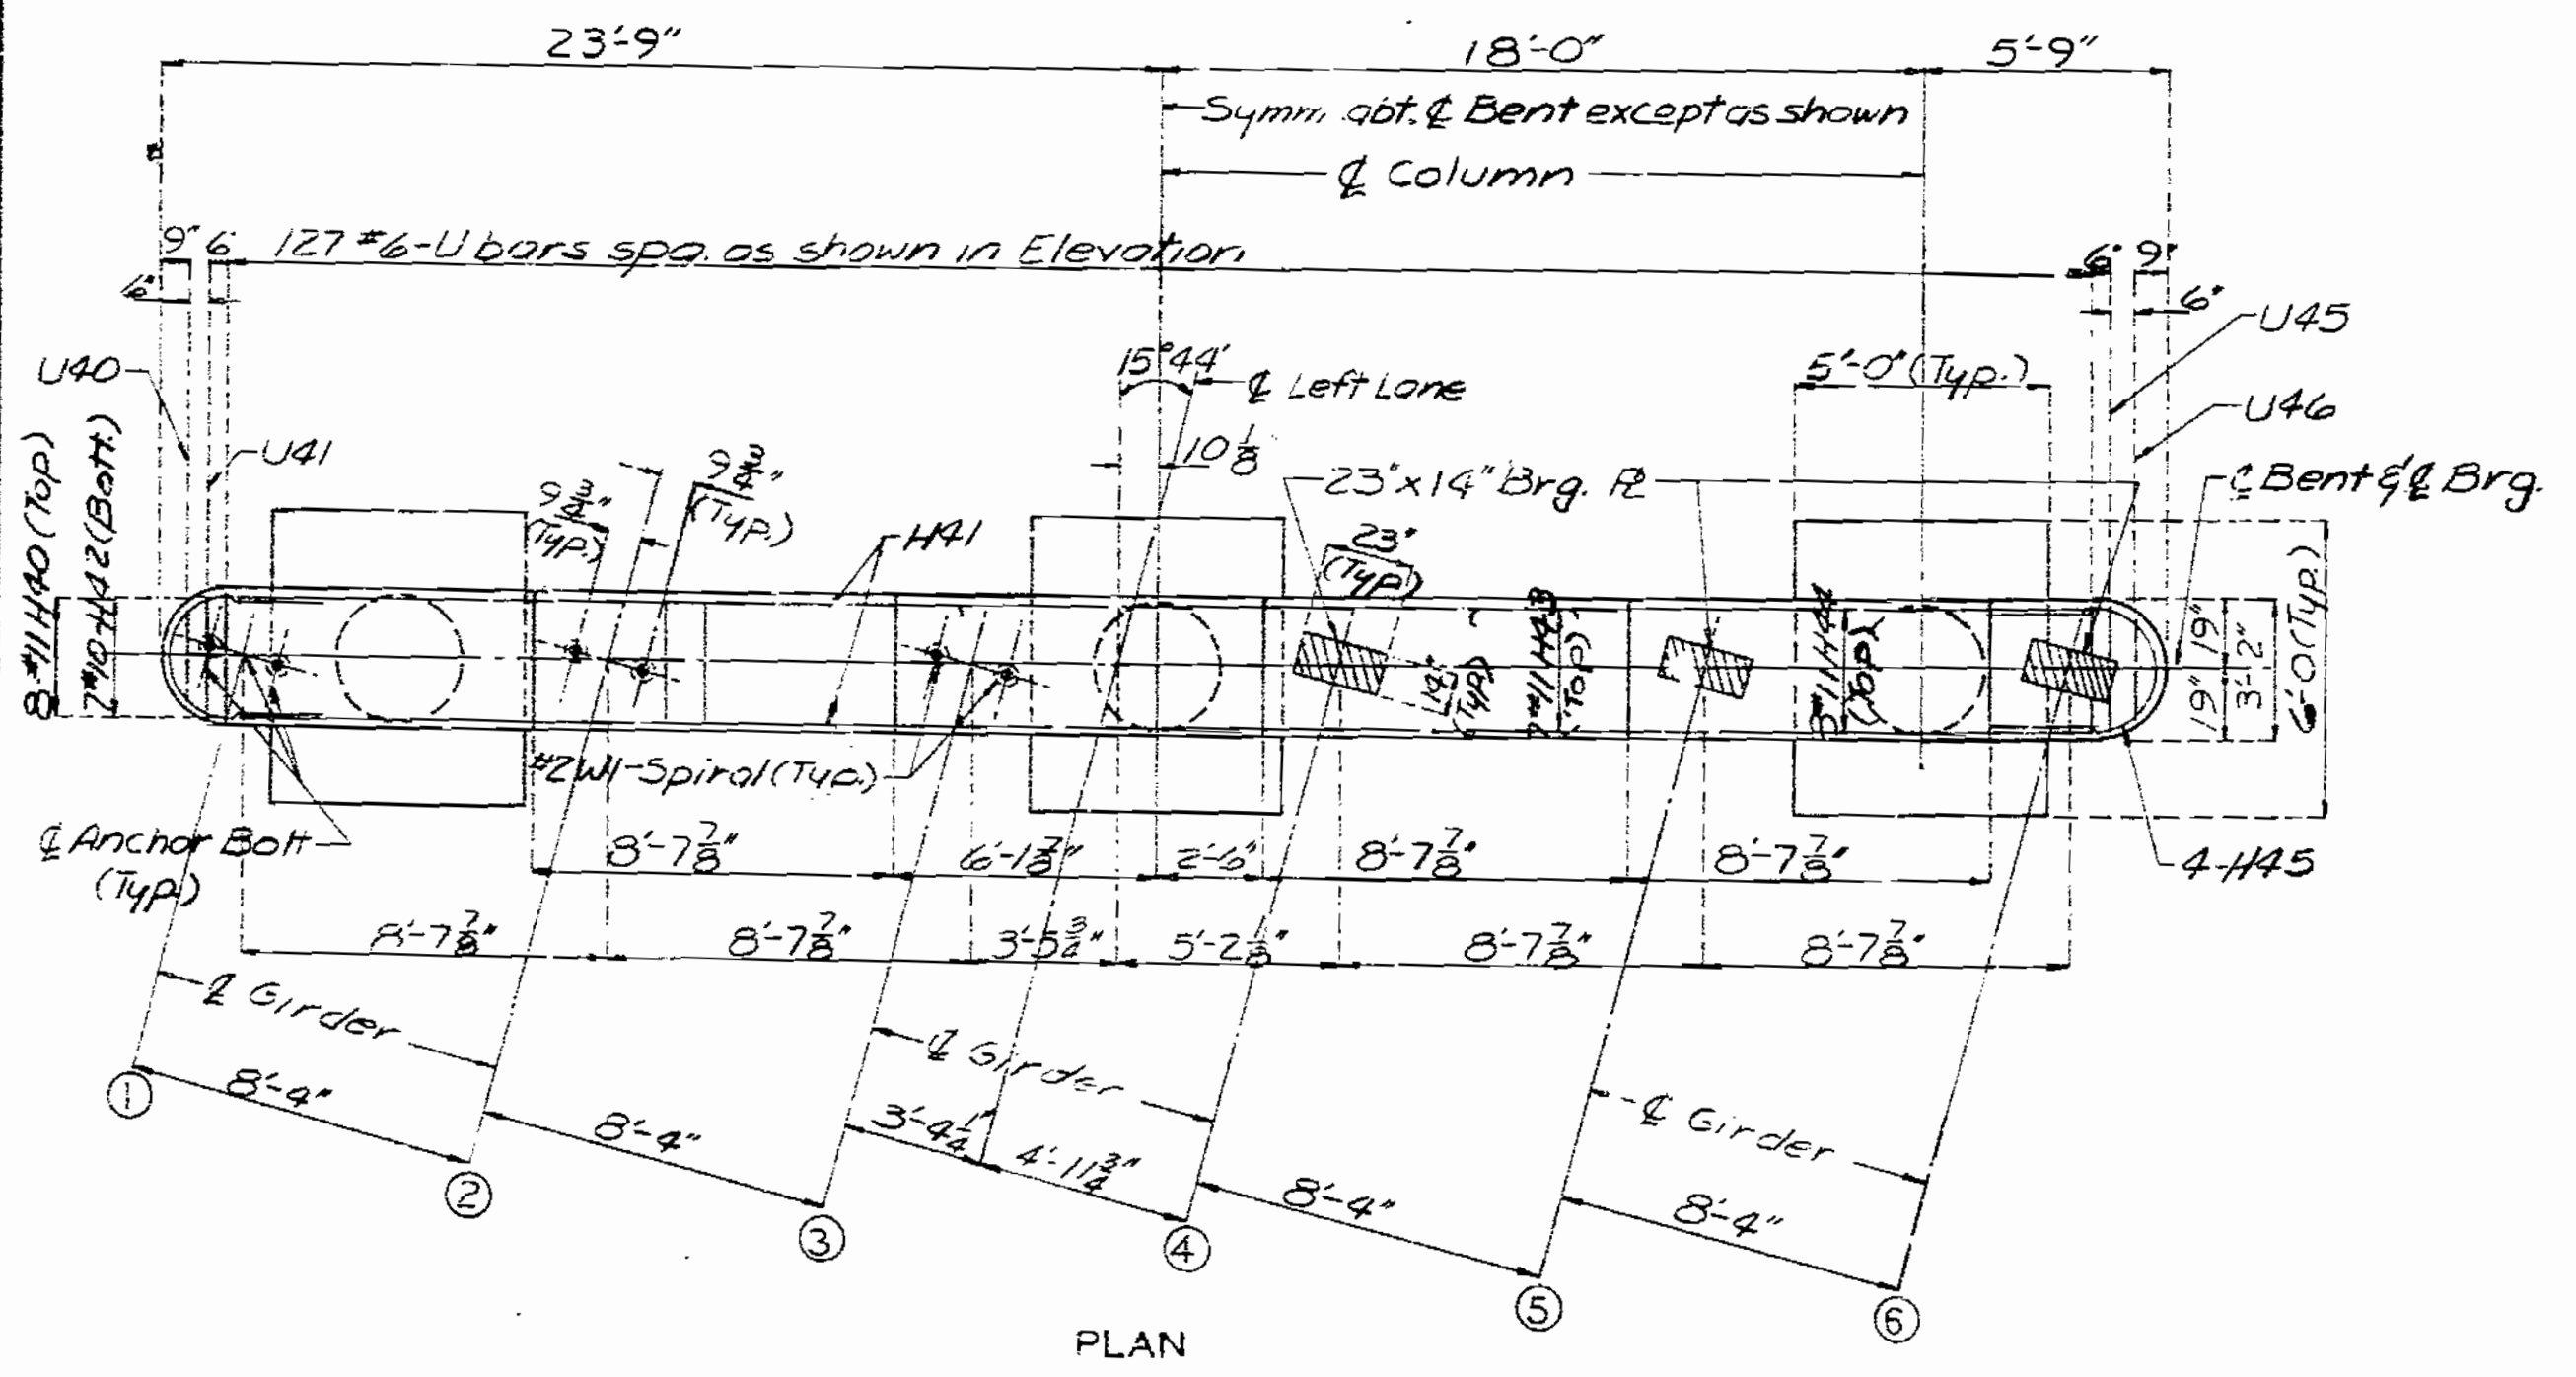 23'-9"
18'-0"
5'-9"
Symm. abt. ℄ Bent except as shown
℄ Column
9" 6 127 #6-U bars spa. as shown in Elevation 6" 9"
6"
6"
U45
15°44'
℄ Left Lane
5'-0" (Typ.)
U40
U46
10 1/8
U41
9 3/4" (Typ.)
9 3/4" (Typ.)
23"x14" Brg. ℙL
℄ Bent & ℄ Brg.
8-#11 H40 (Top)
7#10-H42 (Bott.)
H41
23" (Typ.)
14" (Typ.)
7#11 H43 (Top)
8#11 H44 (Top)
19" 19"
3'-2"
6'-0 (Typ.)
#2 W1-Spiral (Typ.)
℄ Anchor Bolt (Typ.)
8'-7 7/8"
6'-1 7/8"
2'-6"
8'-7 7/8"
8'-7 7/8"
4-H45
8'-7 7/8"
8'-7 7/8"
3'-5 3/4"
5'-2 1/8"
8'-7 7/8"
8'-7 7/8"
℄ Girder
℄ Girder
℄ Girder
8'-4"
8'-4"
3'-4 1/4"
4'-11 3/4"
8'-4"
8'-4"
1
2
3
4
5
6
PLAN